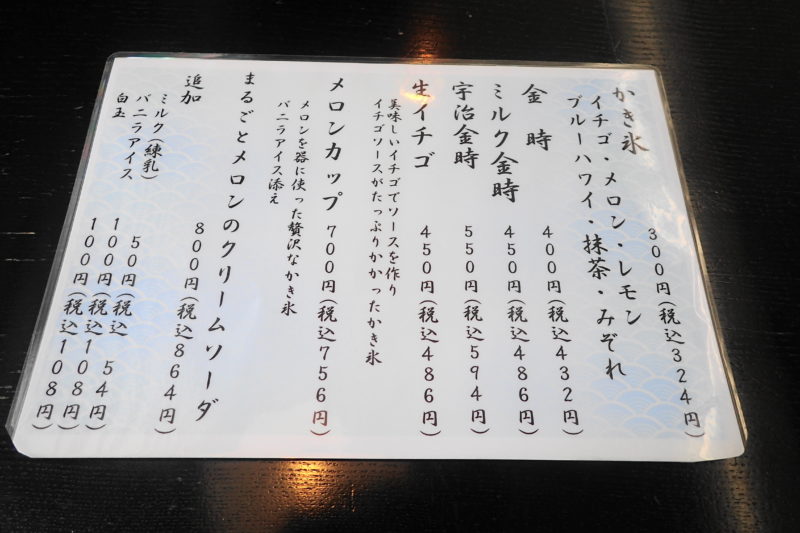 かき氷
300円(税込324円)
イチゴ・メロン・レモン
ブルーハワイ・抹茶・みぞれ
金時 400円(税込432円)
ミルク金時 450円(税込486円)
宇治金時 550円(税込594円)
生イチゴ 450円(税込486円)
美味しいイチゴでソースを作り
イチゴソースがたっぷりかかったかき氷
メロンカップ 700円(税込756円)
メロンを器に使った贅沢なかき氷
バニラアイス添え
まるごとメロンのクリームソーダ
800円(税込864円)
追加
ミルク(練乳) 50円(税込 54円)
バニラアイス 100円(税込108円)
白玉 100円(税込108円)